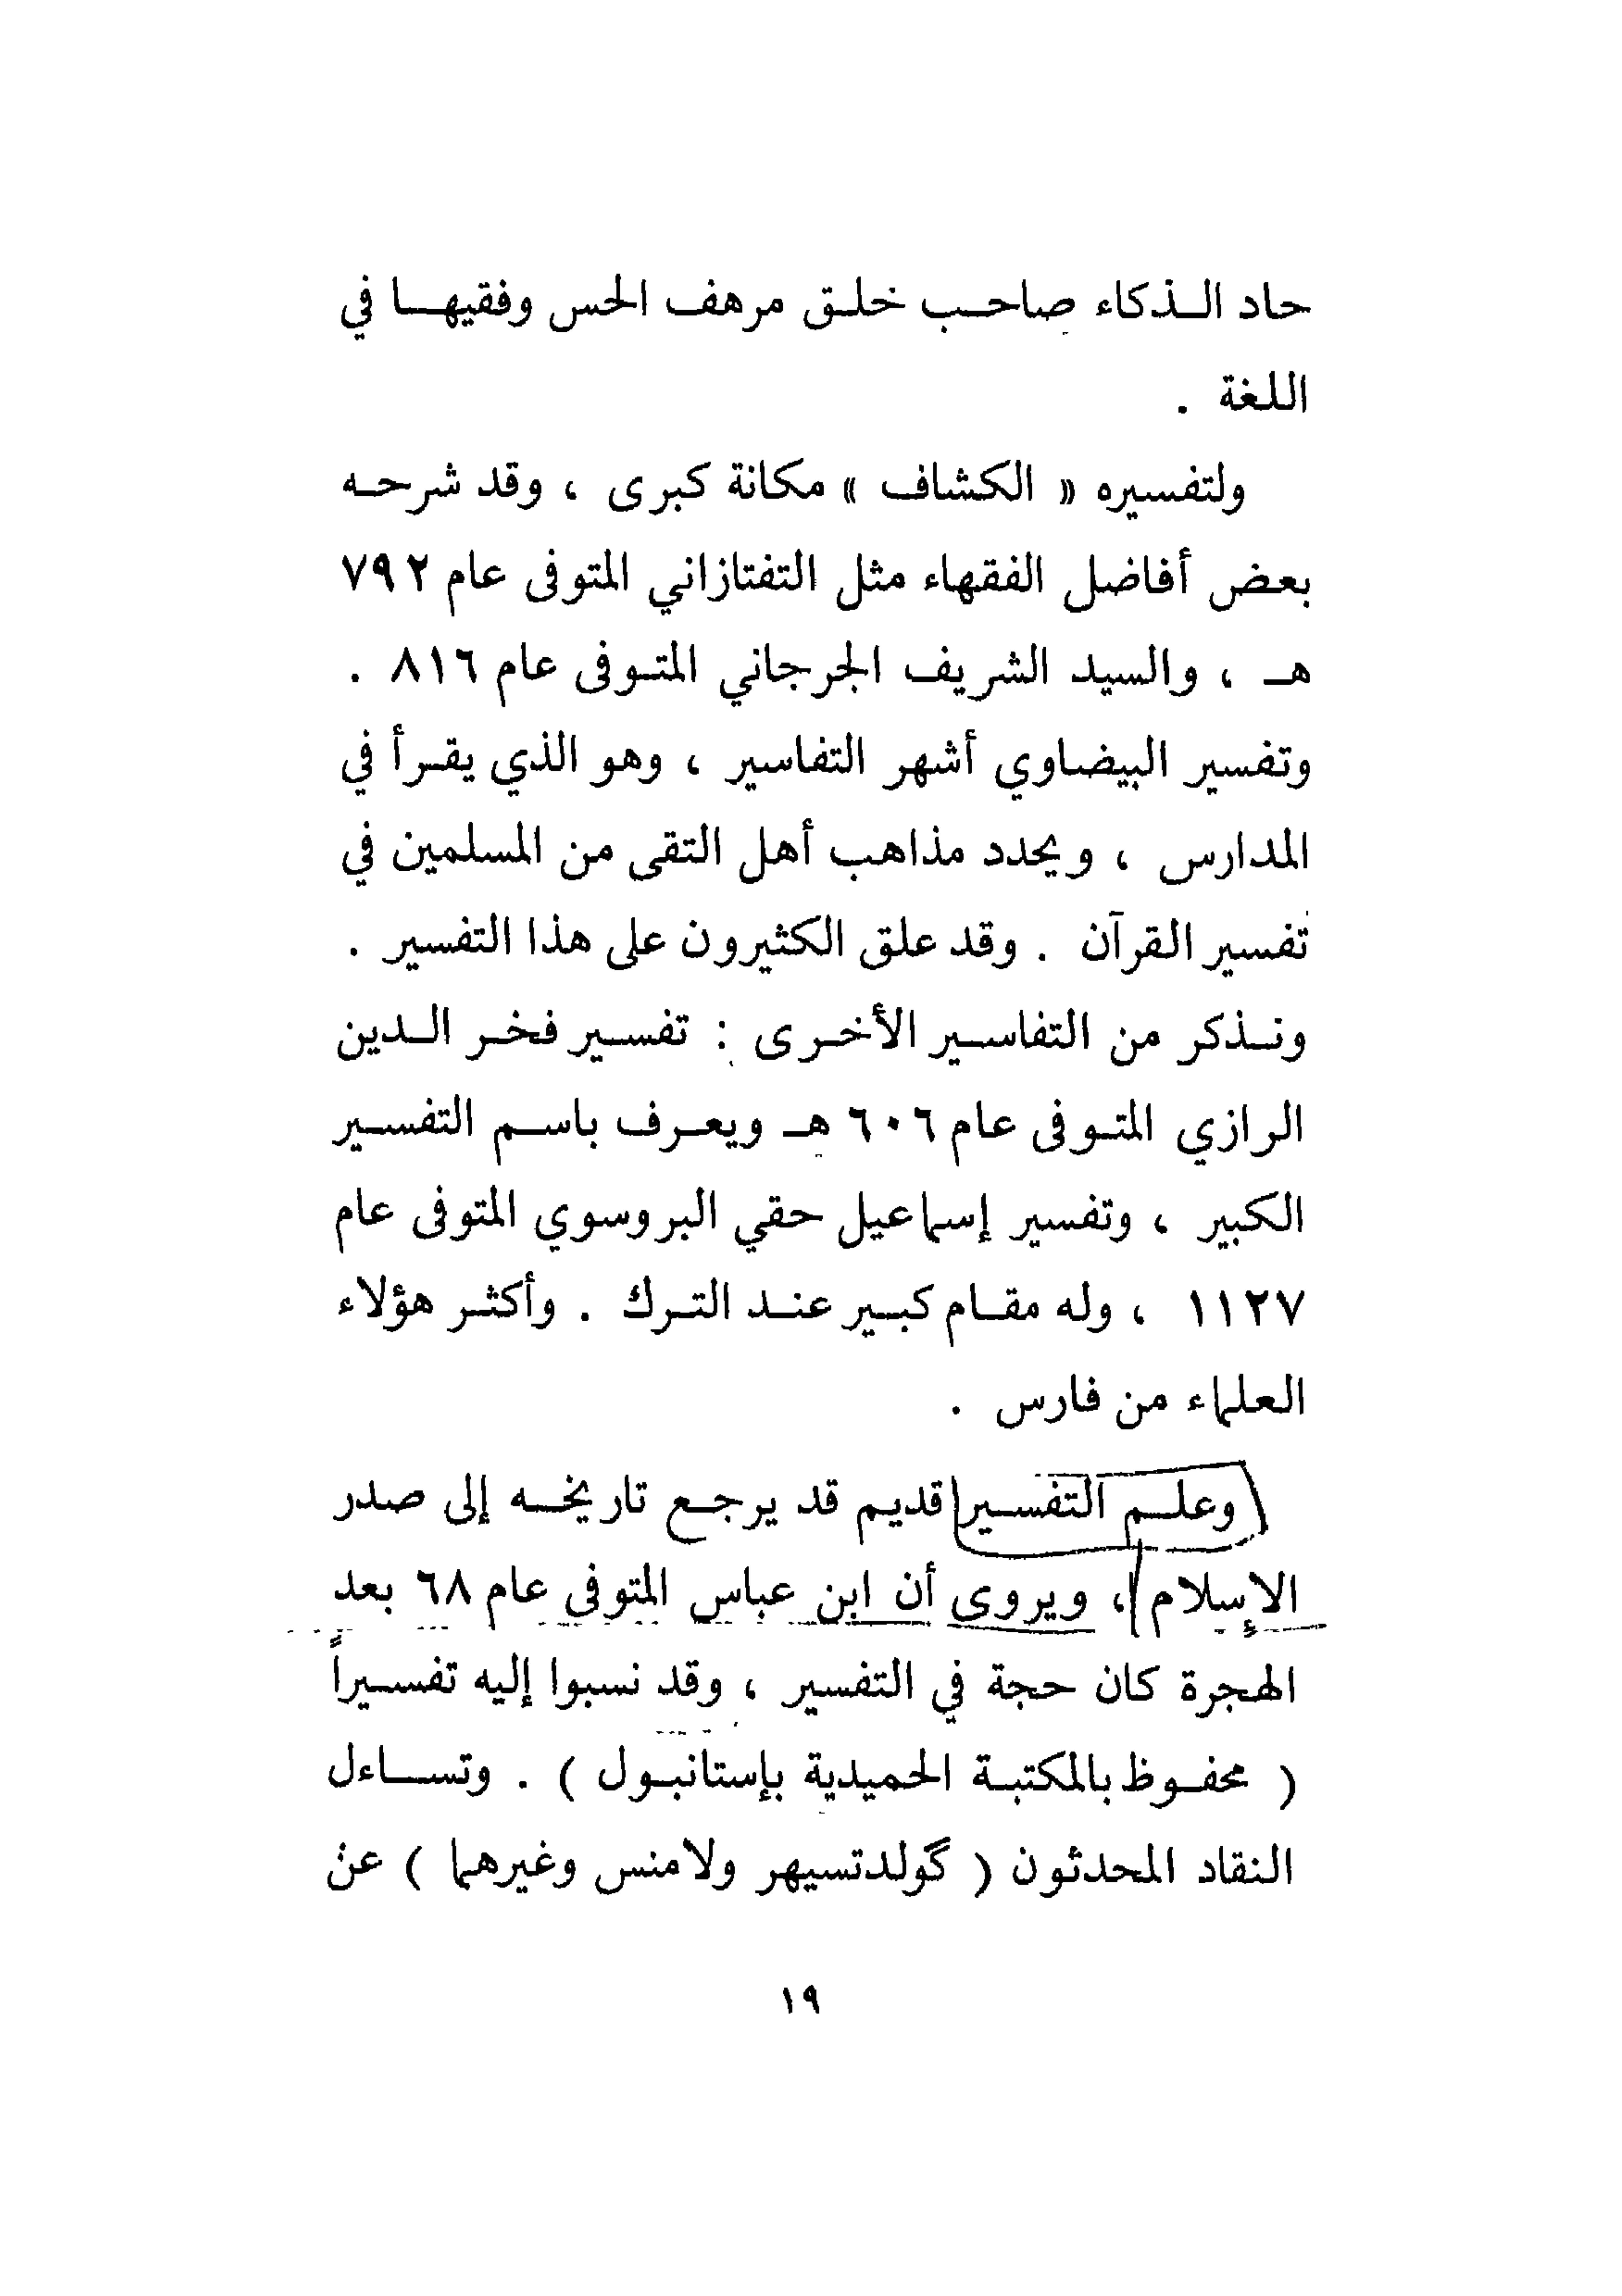 حاد الذكاء صاحب خلق مرهف الحس وفقيها في
اللغة .
ولتفسيره « الكشاف » مكانة كبرى ، وقد شرحه
بعض أفاضل الفقهاء مثل التفتازاني المتوفى عام ٧٩٢
هـ ، والسيد الشريف الجرجاني المتوفى عام ٨١٦ .
وتفسير البيضاوي أشهر التفاسير ، وهو الذي يقرأ في
المدارس ، ويحدد مذاهب أهل التقى من المسلمين في
تفسير القرآن . وقد علق الكثيرون على هذا التفسير .
ونذكر من التفاسير الأخرى : تفسير فخر الدين
الرازي المتوفى عام ٦٠٦ هـ ويعرف باسم التفسير
الكبير ، وتفسير إسماعيل حقي البروسوي المتوفى عام
١١٢٧ ، وله مقام كبير عند الترك . وأكثر هؤلاء
العلماء من فارس .
وعلم التفسير قديم قد يرجع تاريخه إلى صدر
الإسلام ، ويروى أن ابن عباس المتوفى عام ٦٨ بعد
الهجرة كان حجة في التفسير ، وقد نسبوا إليه تفسيراً
( محفوظ بالمكتبة الحميدية بإستانبول ) . وتساءل
النقاد المحدثون ( گولدتسيهر ولامنس وغيرهما ) عن
١٩